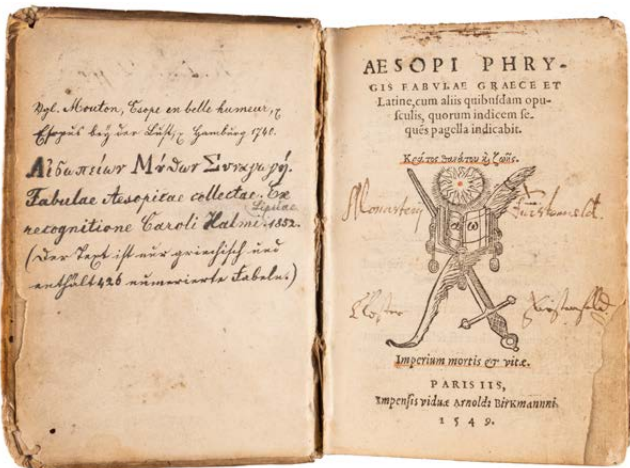 Vgl. Mouton, Esope en belle humeur,
Esopus bey der Lust, Hamburg 1740.
Αἰσωπείων Μύθων Συναγωγή.
Fabulae Aesopicae collectae. Ex
Lipsiae
recognitione Caroli Halmii. 1852.
(Der Text ist nur griechisch und
enthält 426 numerierte Fabeln.)
AESOPI PHRY-
GIS FABVLAE GRAECE ET
Latine, cum aliis quibuſdam opu-
ſculis, quorum indicem ſe-
quēs pagella indicabit.
Κράτος θανάτου καὶ ζωῆς.
Monasterij Furstenfeld.
α ω
Closter Fürstenfeld
Imperium mortis & vitæ.
PARISIIS,
Impenſis viduæ Arnoldi Birkmannni.
1549.